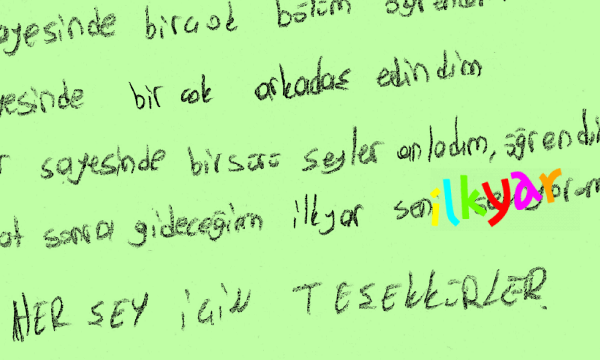 ayesinde bircok bölüm öğrendi
yesinde bir cok arkadaş edindim
r sayesinde birsürü seyler anladım, öğrendi
at sonra gideceğim ilkyar seni seviyorum
ilkyar
HER ŞEY İÇİN TEŞEKKÜRLER